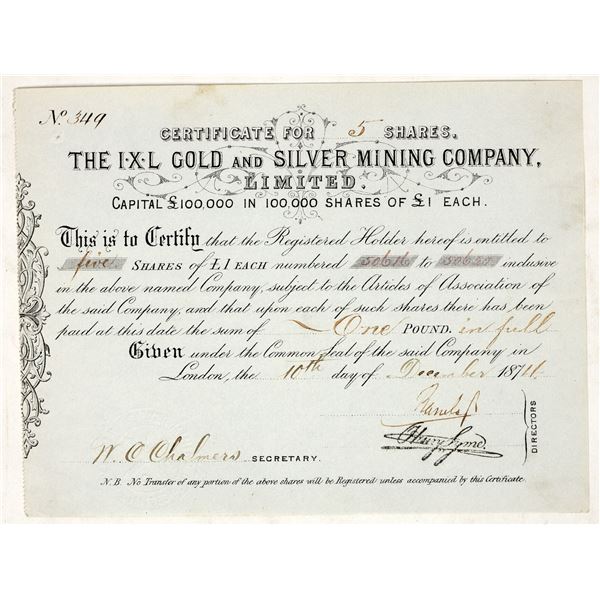 No. 349
CERTIFICATE FOR 5 SHARES.
THE I·X·L GOLD AND SILVER MINING COMPANY,
LIMITED.
CAPITAL £100,000 IN 100,000 SHARES OF £1 EACH.
This is to Certify that the Registered Holder hereof is entitled to
five SHARES OF £1 EACH numbered 50616 to 50620 inclusive
in the above named Company, subject to the Articles of Association of
the said Company, and that upon each of such shares there has been
paid at this date the sum of One POUND. in full
Given under the Common Seal of the said Company in
London, the 10th day of December 1874.
DIRECTORS
W. C. Chalmers SECRETARY.
N.B. No Transfer of any portion of the above shares will be Registered unless accompanied by this Certificate.